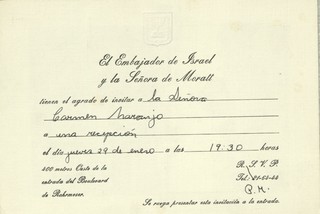 El Embajador de Israel
y la Señora de Moratt
tienen el agrado de invitar a la Señora
Carmen Naranjo
a una recepción
el día jueves 29 de enero a las 19:30 horas
400 metros Oeste de la
entrada del Boulevard
de Rohrmoser.
R.S.V.P.
Tel.
P.M.
Se ruega presentar esta invitación a la entrada.